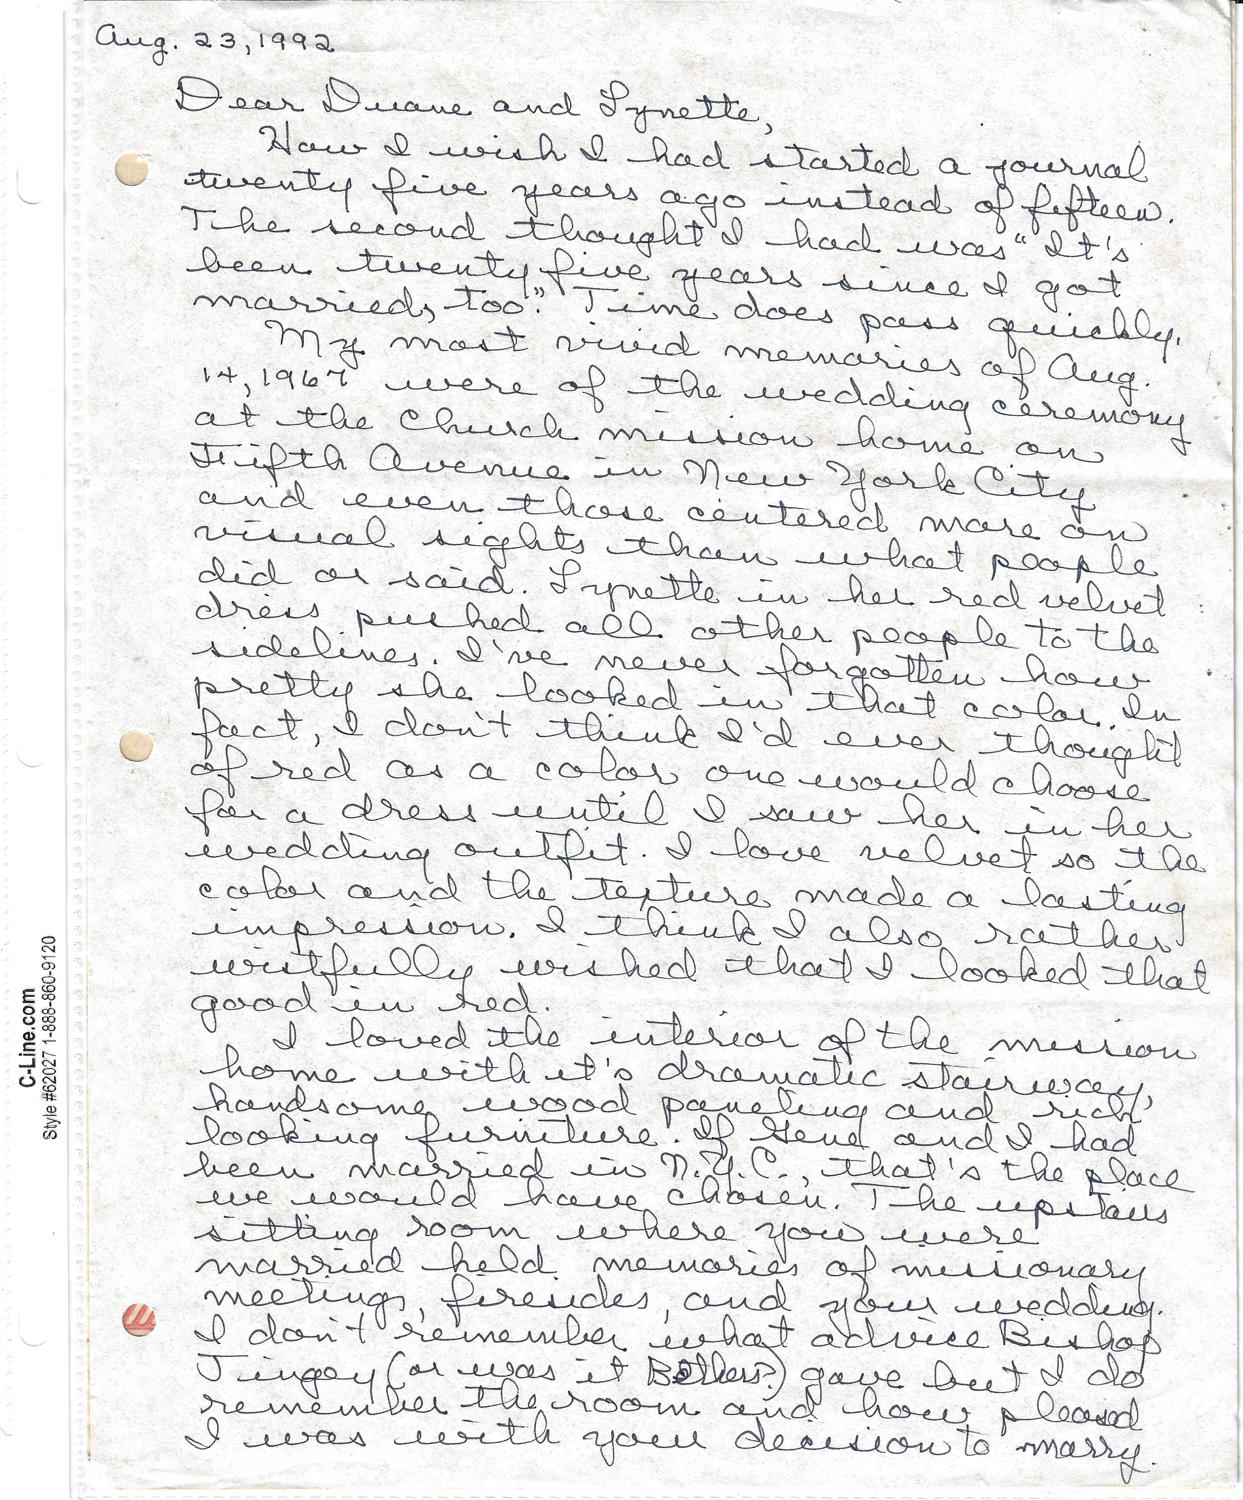 Aug. 23, 1992
Dear Duane and Lynette,
How I wish I had started a journal
twenty five years ago instead of fifteen.
The second thought I had was "It's
been twenty five years since I got
married, too." Time does pass quickly.
My most vivid memories of Aug.
14, 1967 were of the wedding ceremony
at the Church mission home on
Fifth Avenue in New York City
and even those centered more on
visual sights than what people
did or said. Lynette in her red velvet
dress pushed all other people to the
sidelines. I've never forgotten how
pretty she looked in that color. In
fact, I don't think I'd ever thought
of red as a color one would choose
for a dress until I saw her in her
wedding outfit. I love velvet so the
color and the texture made a lasting
impression. I think I also rather
wistfully wished that I looked that
good in red.
I loved the interior of the mission
home with it's dramatic stairway,
handsome wood paneling and rich
looking furniture. If Gene and I had
been married in N.Y.C., that's the place
we would have chosen. The upstairs
sitting room where you were
married held memories of missionary
meetings, firesides, and your wedding.
I don't remember what advice Bishop
Tingey (or was it Bethers?) gave but I do
remember the room and how pleased
I was with your decision to marry.
C-Line.com
Style #62027 1-888-860-9120